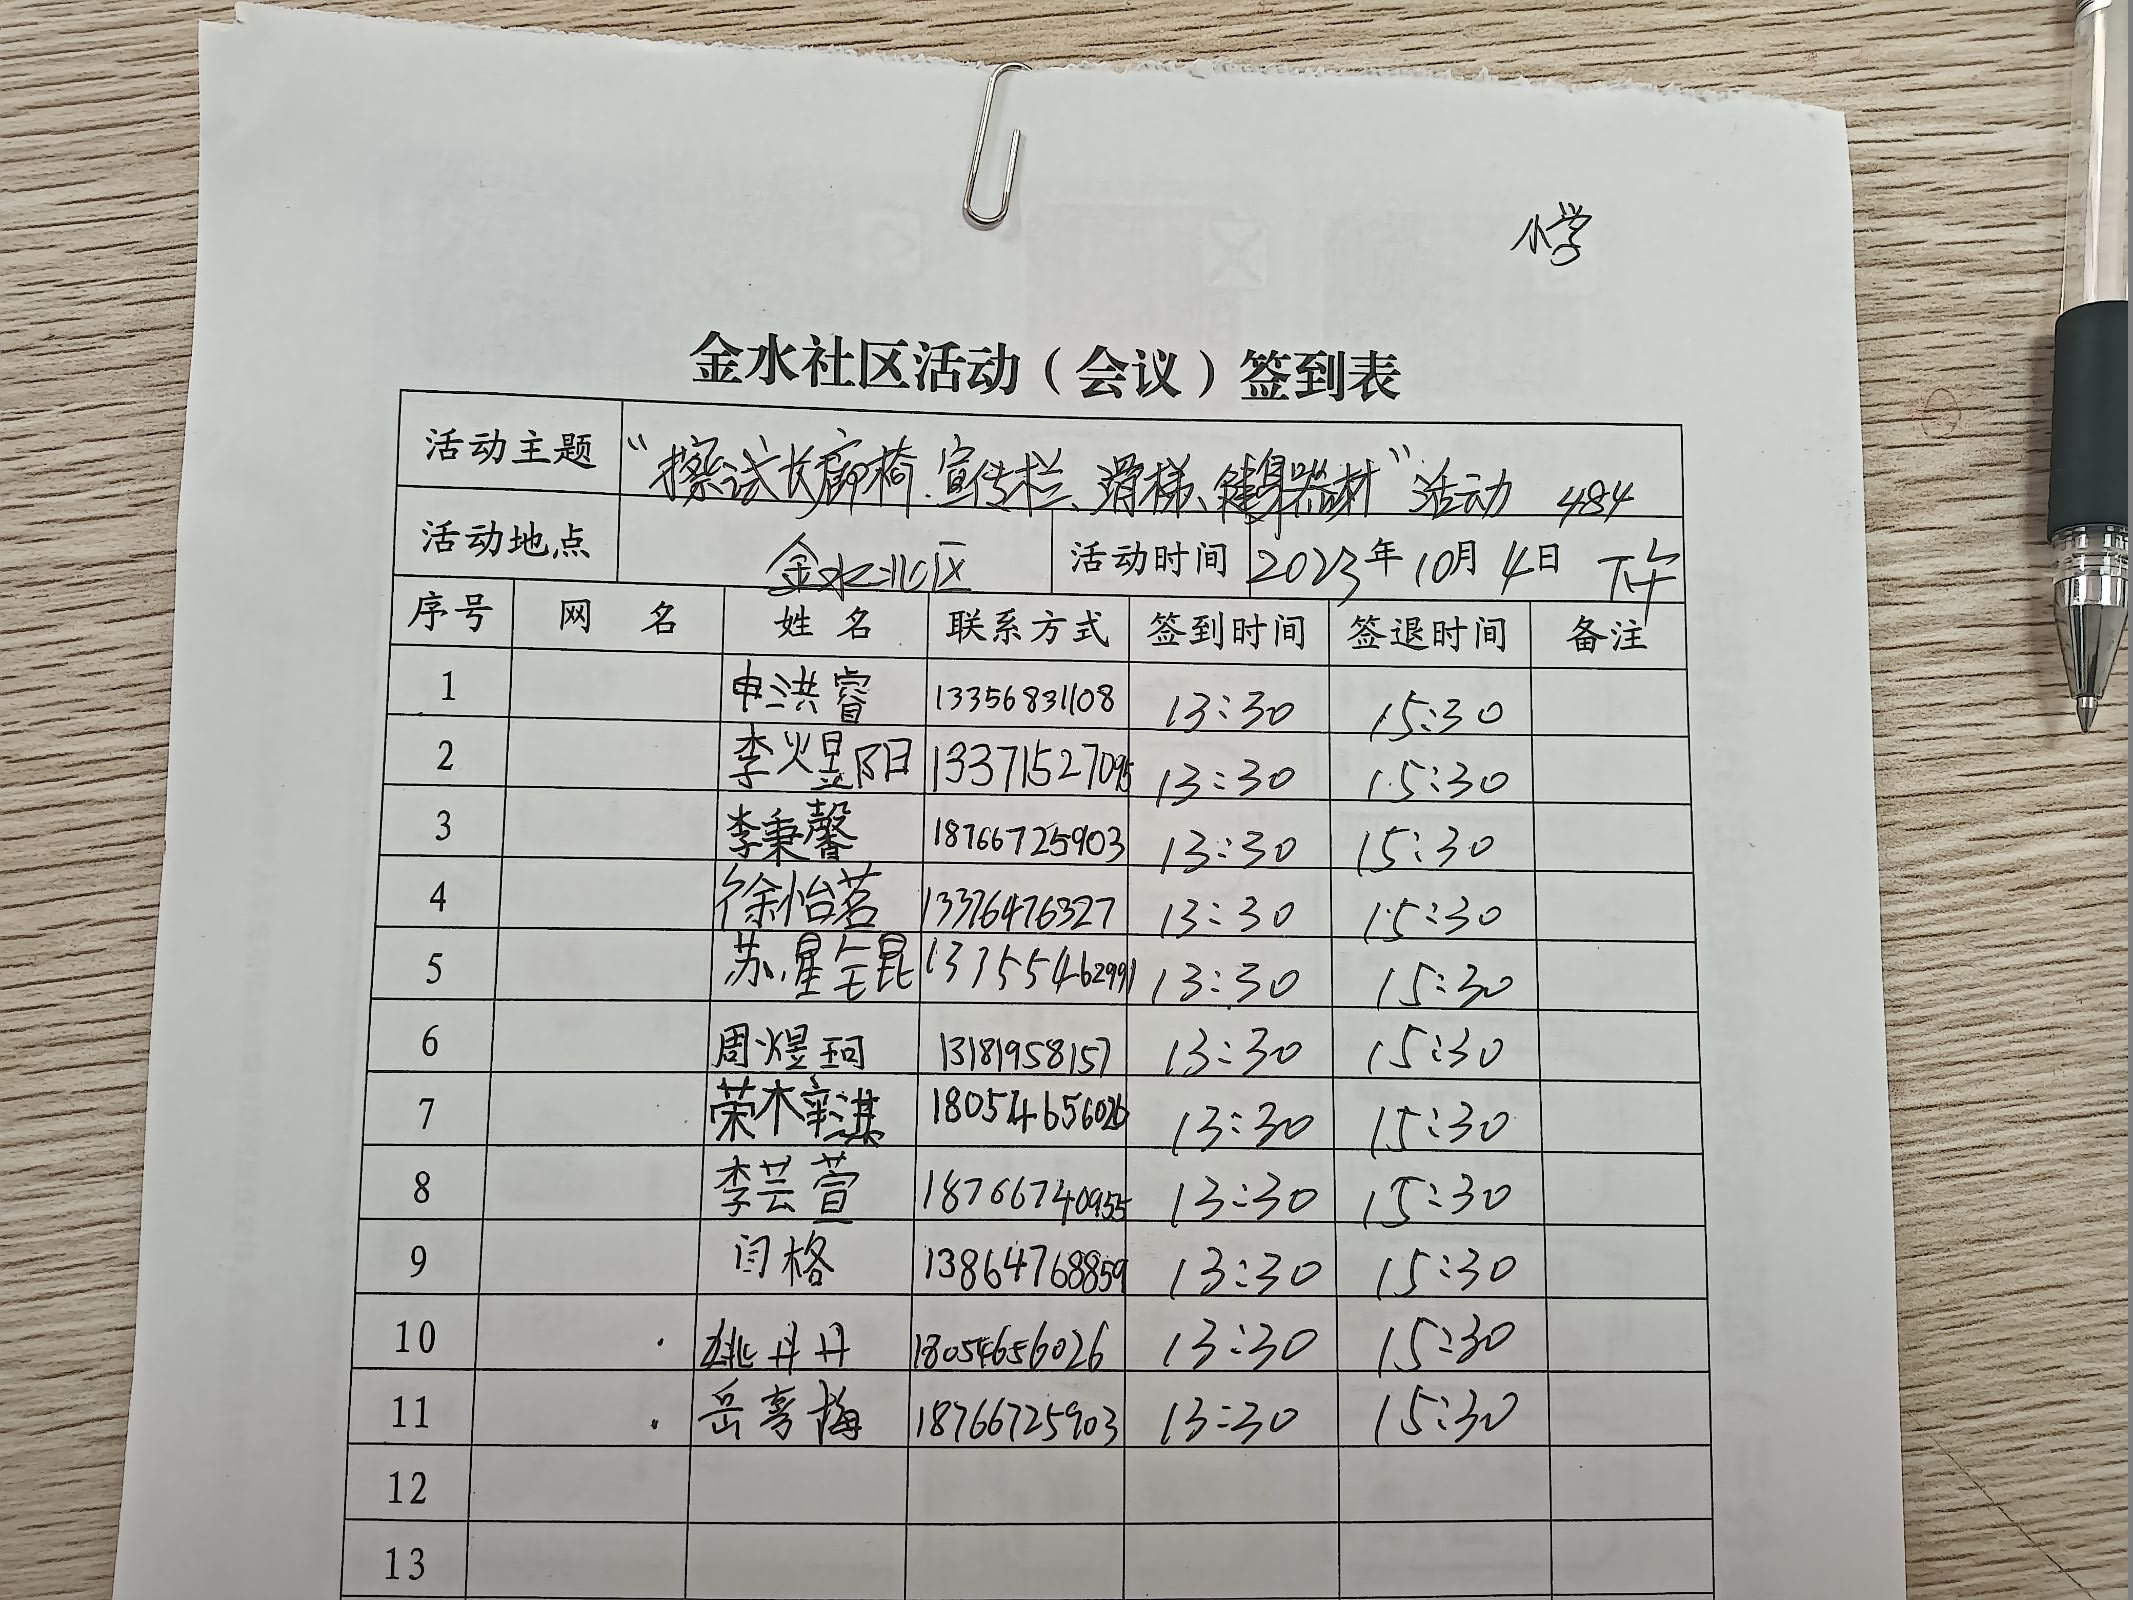 小学
金水社区活动（会议）签到表
活动主题 “擦试长廊椅、宣传栏、滑梯、健身器材”活动 484
活动地点 金水北区 活动时间 2023年10月4日 下午
序号 网 名 姓 名 联系方式 签到时间 签退时间 备注
1 申洪睿 13356831108 13:30 15:30
2 李煜阳 13371527095 13:30 15:30
3 李秉馨 18766725903 13:30 15:30
4 徐怡茗 13376476327 13:30 15:30
5 苏星 13:30 15:30
6 周煜珂 13181958157 13:30 15:30
7 荣梓淇 18054656026 13:30 15:30
8 李芸萱 18766740955 13:30 15:30
9 闫格 13864768859 13:30 15:30
10 姚丹丹 18054656026 13:30 15:30
11 岳喜梅 18766725903 13:30 15:30
12
13